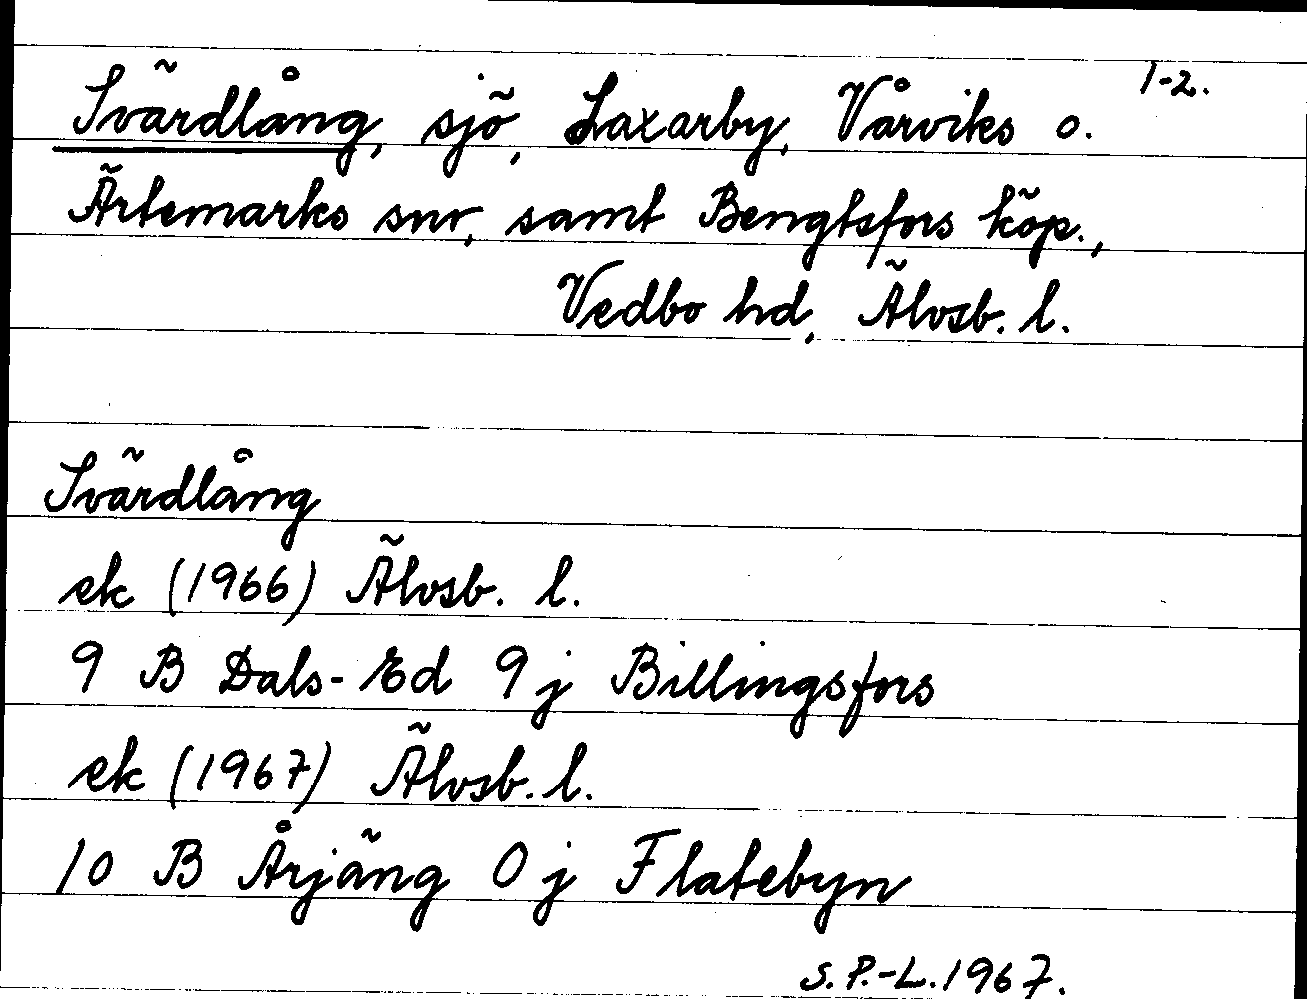 1-2.
Svärdlång, sjö, Laxarby, Vårviks o.
Ärtemarks snr, samt Bengtsfors köp.,
Vedbo hd, Älvsb. l.
Svärdlång
ek (1966) Älvsb. l.
9 B Dals-Ed 9 j Billingsfors
ek (1967) Älvsb. l.
10 B Årjäng 0 j Flatebyn
S. P.-L. 1967.